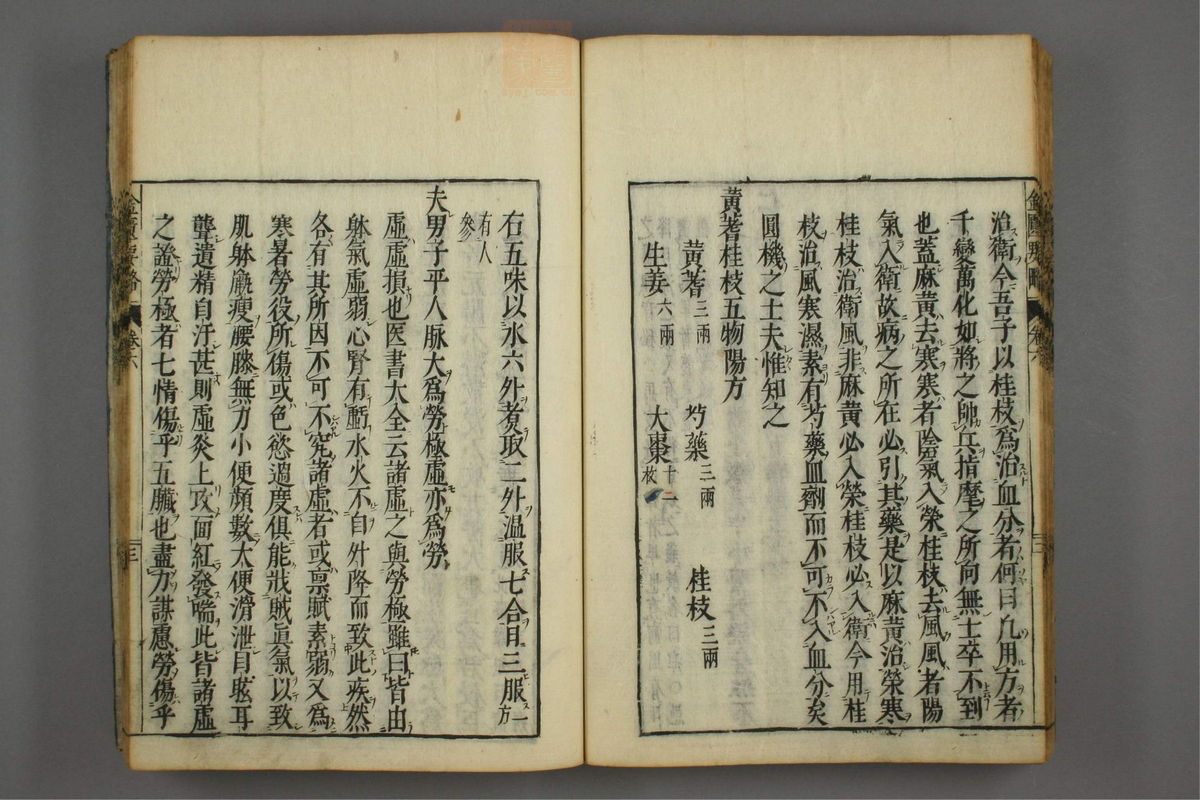 治衛今吾子以桂枝爲治血分者何曰凢用方者
千變萬化如將之帥兵指麾之所向無士卒不到
也蓋麻黄去寒寒者陰氣入榮桂枝去風風者陽
氣入衛故病之所在必引其藥是以麻黄治榮寒
桂枝治衛風非麻黄必入榮桂枝必入衛今用桂
枝治風寒濕素有芍藥血劑而不可不入血分矣
圓機之士夫惟知之
黄蓍桂枝五物陽方
黄蓍三兩 芍藥三兩 桂枝三兩
生姜六兩 大棗十二枚
右五味以水六升煑取二升温服七合日三服一方
有人參
夫男子平人脉大爲勞極虛亦爲勞
虛虛損也医書大全云諸虛之與勞極雖曰皆由
躰氣虛弱心腎有虧水火不自升降而致此疾然
各有其所因不可不究諸虛者或禀賦素弱又爲
寒暑勞役所傷或色慾過度俱能戕賊眞氣以致
肌躰羸瘦腰膝無力小便頻數大便滑泄目眩耳
聾遺精自汗甚則虛炎上攻面紅發喘此皆諸虛
之證勞極者七情傷乎五臟也盡力謀慮勞傷乎
金匱要略 卷六 三